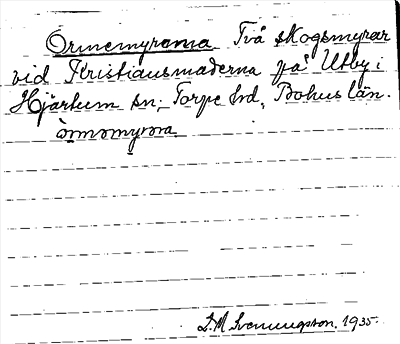 Ormemyrarna Två skogsmyrar
vid Kristiansmaderna på Utby i
Hjärtum sn; Torpe hrd, Bohus län.
ormomyrora
L.M Svenungsson, 1935.